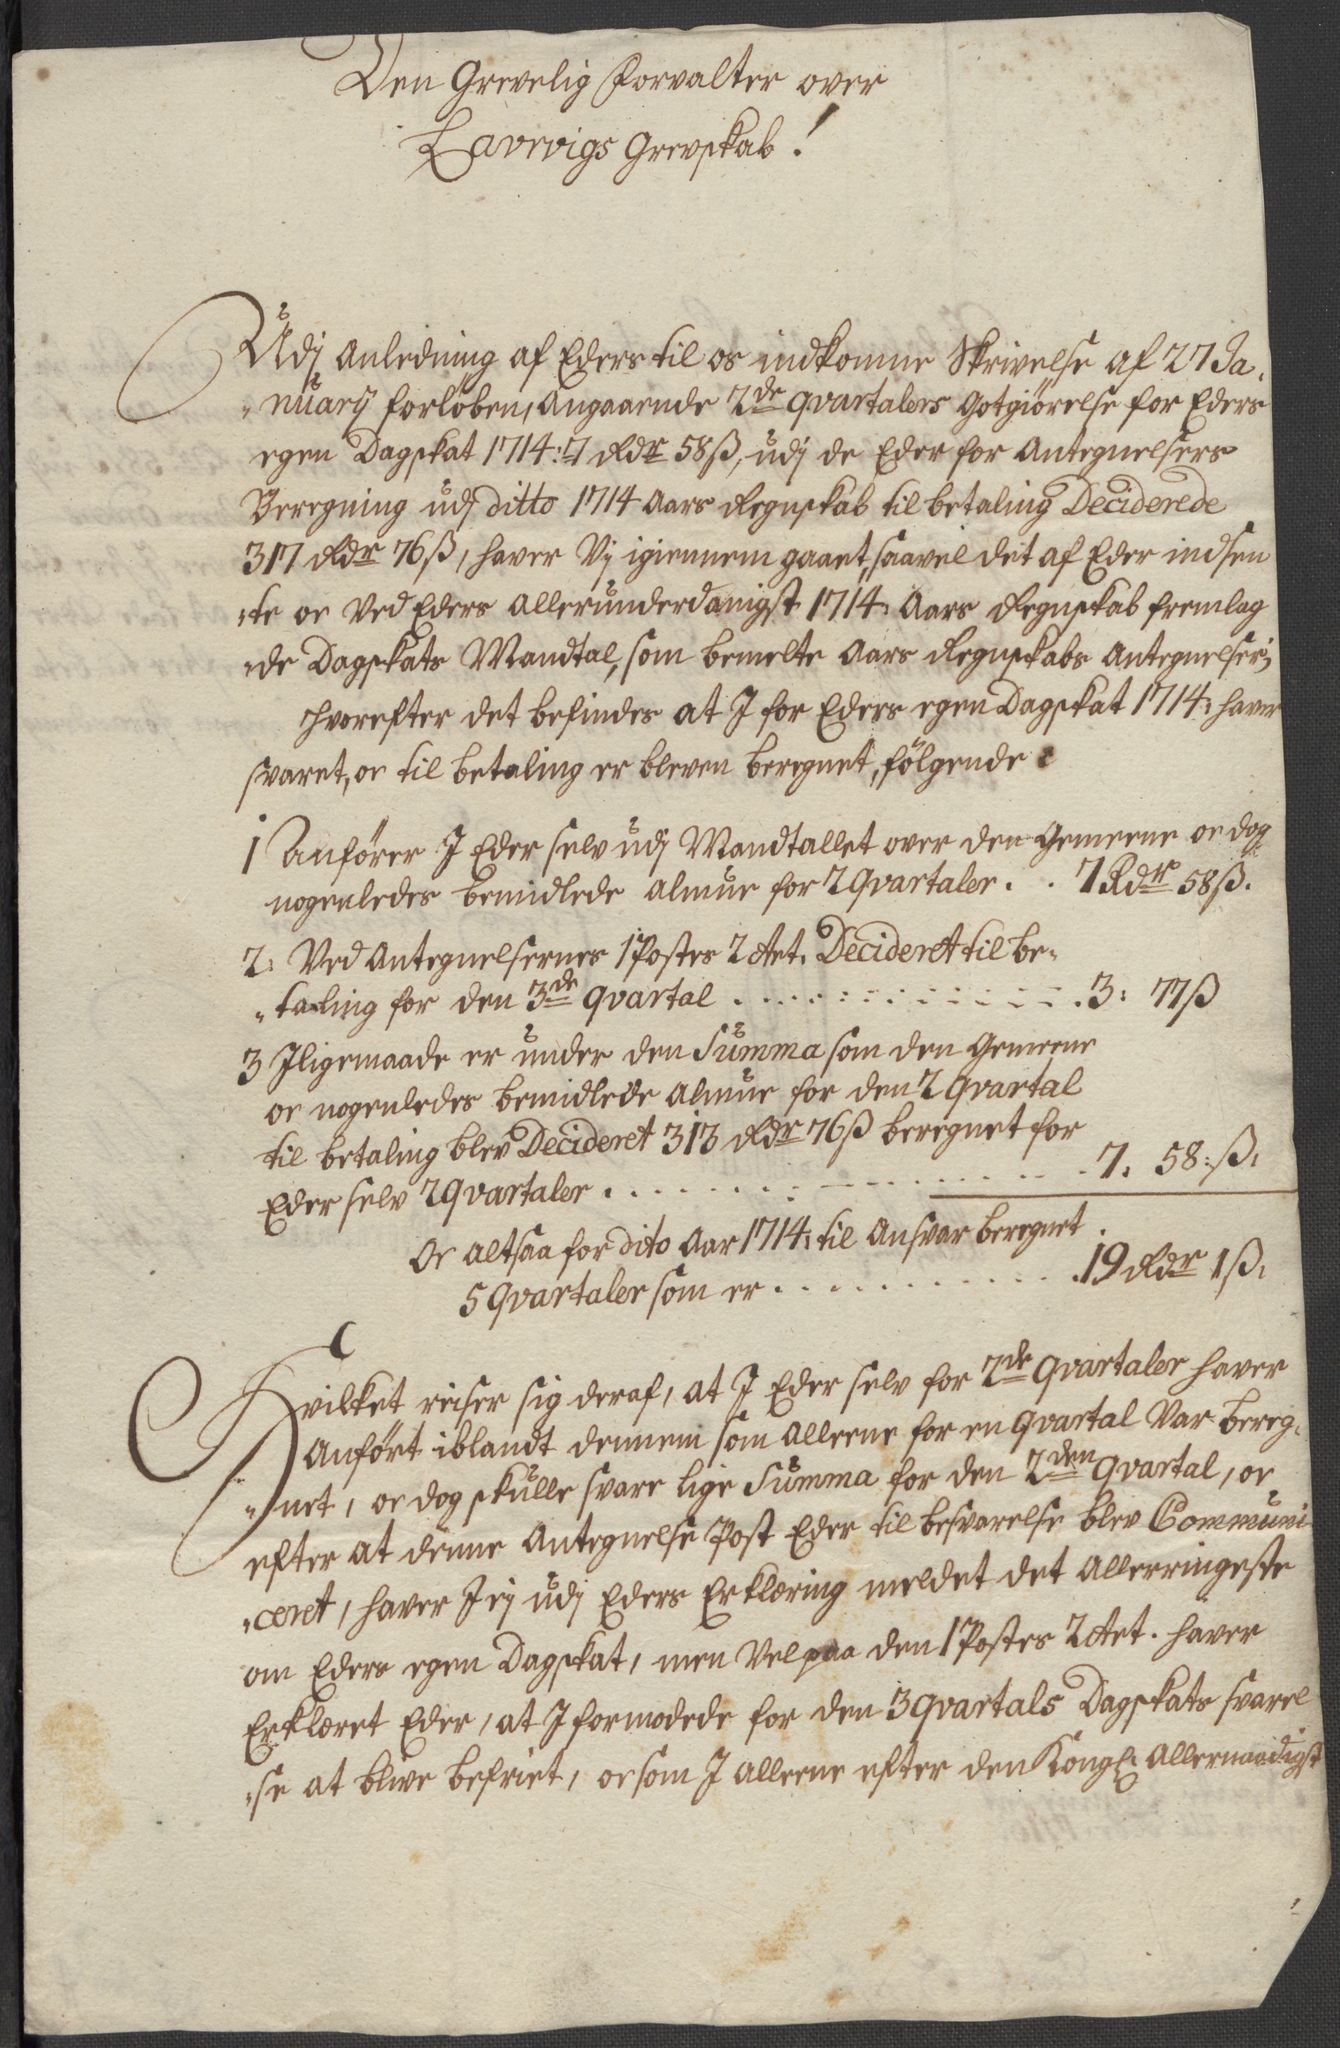 Den Grevelig Forvalter over
Laurvigs Grevskab!
Udj Anledning af Eders til os indkomne Skrivelse af 27 Ja,
„nuarij forløben, Angaaende 2de qvartalers Gotgiørelse for Eders
egen Dagskat 1714: 7 Rdr 58ß, udj de Eder for Antegnelsers
Beregning udj ditto 1714 Aars Regnskab til betaling Deciderede
317 Rdr 76ß, haver Vj igiennem gaaet, saavel det af Eder indsen
„te oc Ved Eders Allerunderdanigst 1714: Aars Regnskab fremlag
„de Dagskats Mandtal, som bemelte Aars Regnskabs Antegnelser;
hvorefter det befindes at I for Eders egen Dagskat 1714: haver
svaret, oc til betaling er bleven beregnet, følgende:
1 Anfører I Eder selv udj Mandtallet over den Gemeene oc dog
nogenledes bemidlede almue for 2 Qvartaler. . 7 Rdr 58ß.
2: Ved Antegnelsernes 1 Postes 2 Act. Decideret til be-
„taling for den 3de qvartal . . . . . . . . . . . 3: 77ß
3 Jligemaade er under den Summa som den Gemeene
oc nogenledes bemidlede Almue for den 2 Qvartal
til betaling blev Decideret 313 Rdr 76ß beregnet for
Eder selv 2 Qvartaler . . . . . . . . . . . 7. 58:ß:
Oc altsaa for dito Aar 1714: til Ansvar beregnet.
5 Qvartaler som er . . . . . . . . . . . 19 Rdr 1ß:
Hvilket reiser sig deraf, at I Eder selv for 2de Qvartaler haver
Anført iblandt dennem som Alleene for en qvartal Var bereg,
„net, oc dog skulle svare lige Summa for den 2den Qvartal, oc
efter at denne Antegnelse Post Eder til besvarelse blev Communi
„ceret, haver I ej udj Eders Erklæring meldet det Allerringeste
om Eders egen Dagskat, men Vel paa den 1 Postes 2 Act. haver
Erklæret Eder, at I formodede for den 3 qvartals Dagskats svarel
„se at blive befriet, oc som I Alleene efter den Kongl: Allernaadigst